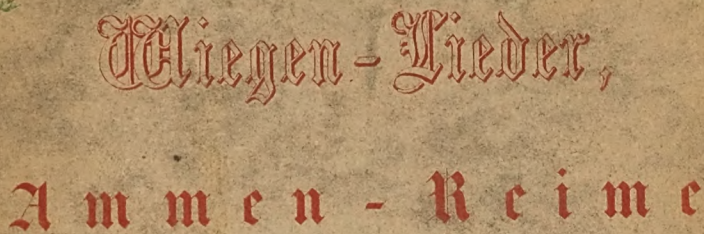 Wiegen-Lieder,
Ammen-Reime